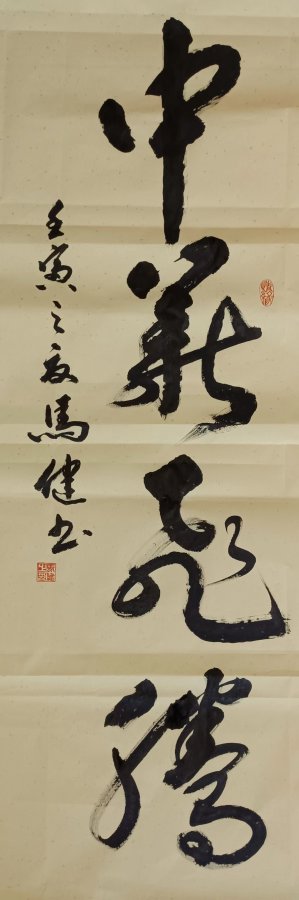 中華飛騰
壬寅之夏馬健书